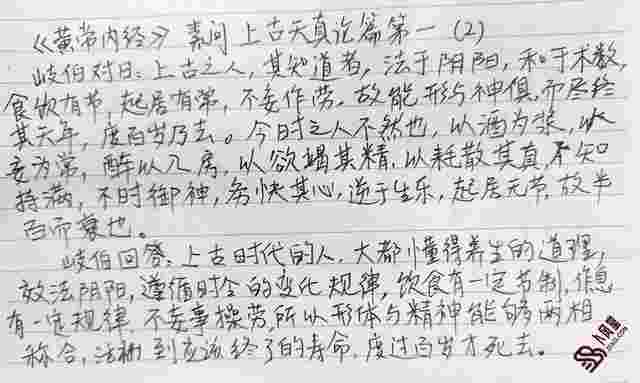 《黄帝内经》素问 上古天真论篇第一 (2)
岐伯对曰：上古之人，其知道者，法于阴阳，和于术数，
食饮有节，起居有常，不妄作劳，故能形与神俱，而尽终
其天年，度百岁乃去。今时之人不然也，以酒为浆，以
妄为常，醉以入房，以欲竭其精，以耗散其真，不知
持满，不时御神，务快其心，逆于生乐，起居无节，故半
百而衰也。
岐伯回答：上古时代的人，大都懂得养生的道理，
效法阴阳，遵循时令的变化规律，饮食有一定节制，作息
有一定规律，不妄事操劳，所以形体与精神能够两相
称合，活到应该终了的寿命，度过百岁才死去。